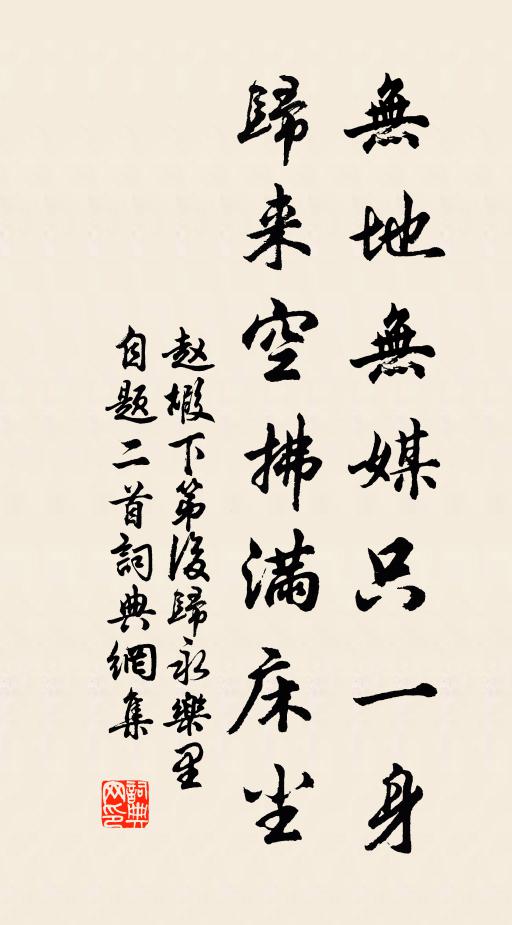 無地無媒只一身
歸来空拂滿床尘
赵椵下第後歸永樂里
自题二首詞典網集
詞典
网印